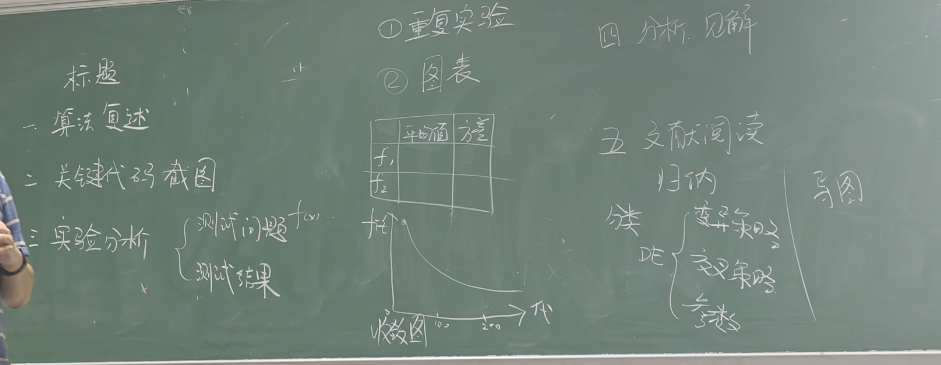 标题
一 算法复述
二 关键代码截图
三 实验分析
测试问题 f(x)
测试结果
① 重复实验
② 图表
平均值 方差
f₁
f₂
f(x)
100 200 代
收敛图
四 分析.见解
五 文献阅读
归纳
导图
分类
DE
变异策略
交叉策略
参数